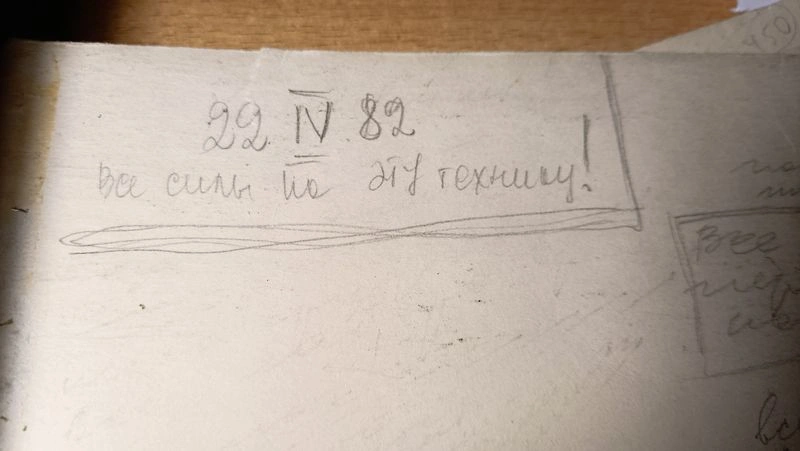 22 IV 82
Все силы на эту технику!
450
Все